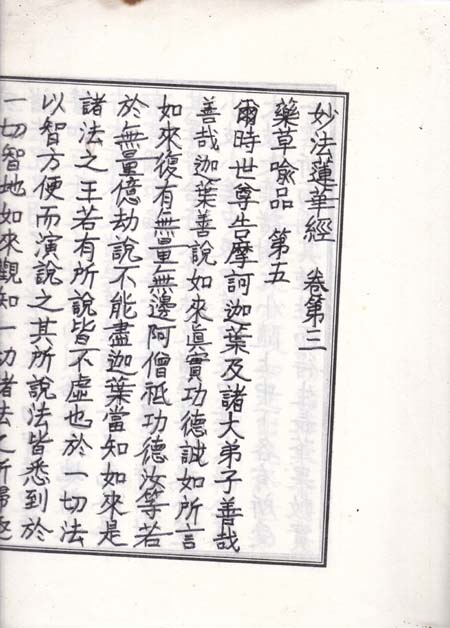 妙法蓮華經 卷第三
藥草喩品 第五
爾時世尊告摩訶迦葉及諸大弟子善哉
善哉迦葉善說如來眞實功德誠如所言
如來復有無量無邊阿僧祗功德汝等若
於無量億劫說不能盡迦葉當知如來是
諸法之王若有所說皆不虛也於一切法
以智方便而演說之其所說法皆悉到於
一切智地如來觀知一切諸法之所歸